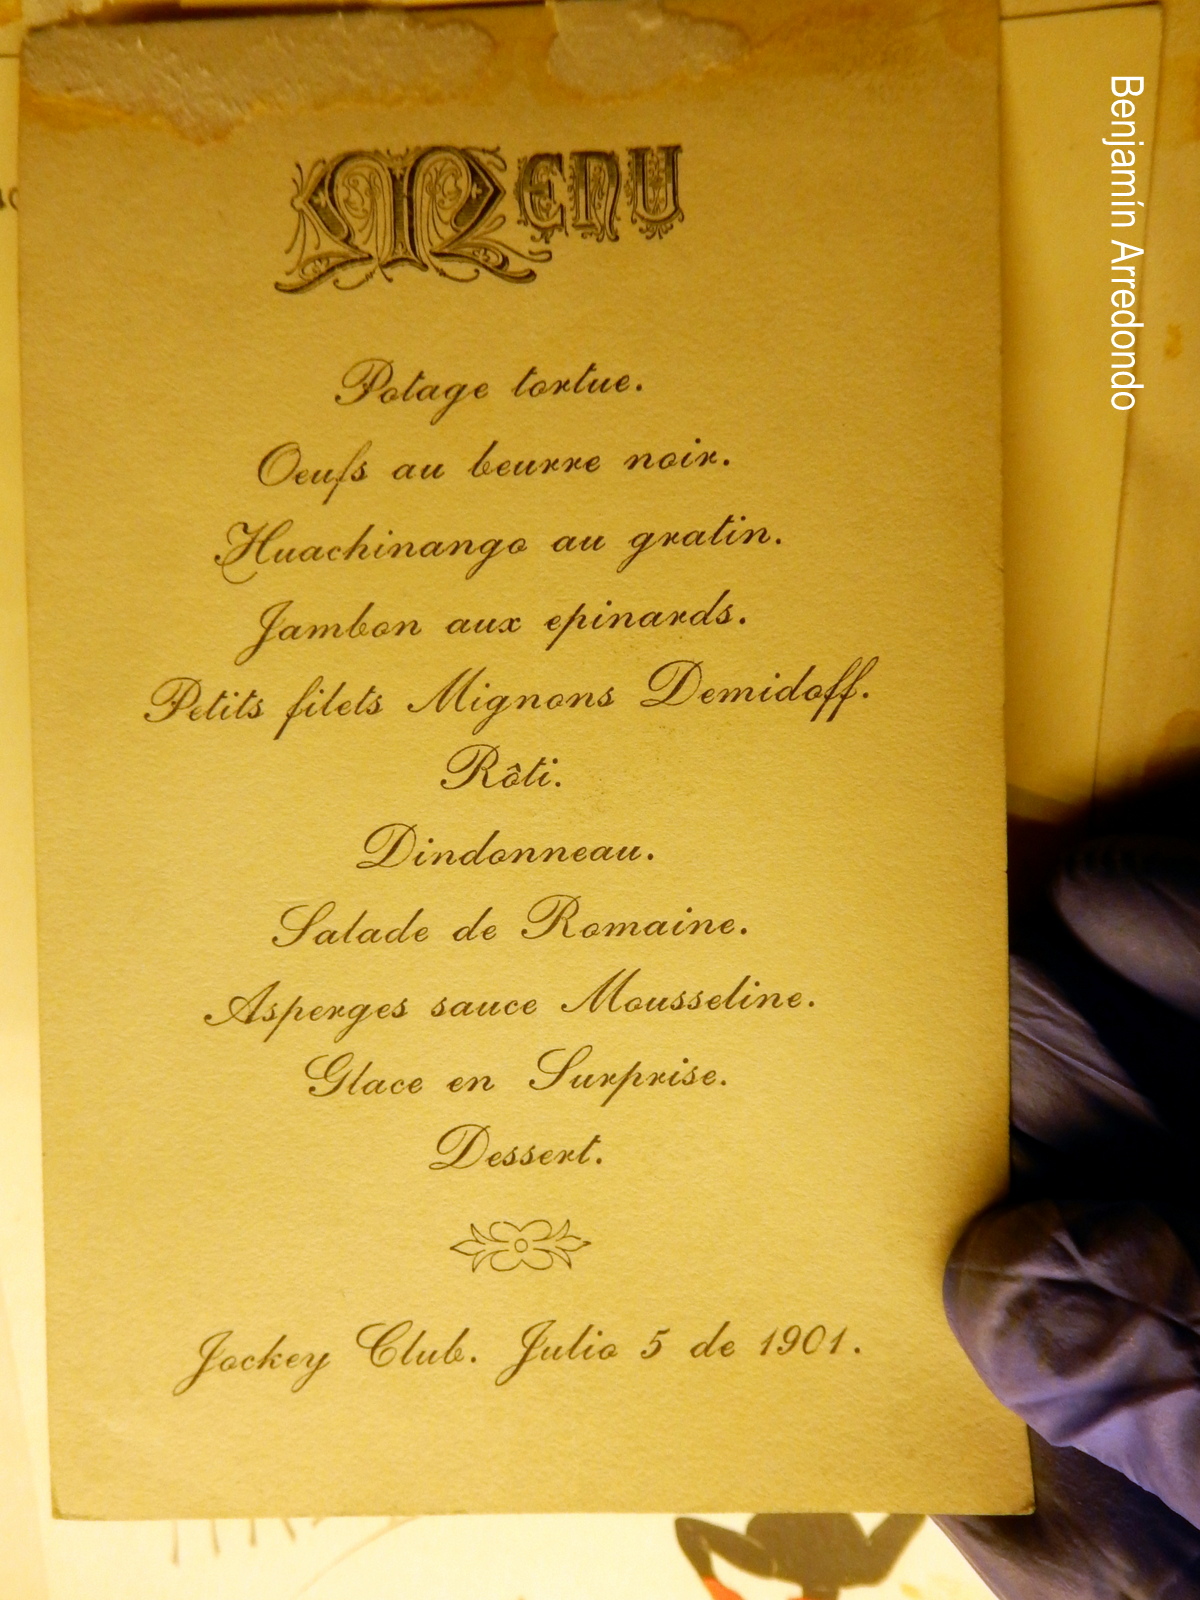 Menu
Potage tortue.
Oeufs au beurre noir.
Huachinango au gratin.
Jambon aux epinards.
Petits filets Mignons Demidoff.
Rôti.
Dindonneau.
Salade de Romaine.
Asperges sauce Mousseline.
Glace en Surprise.
Dessert.
Jockey Club. Julio 5 de 1901.
Benjamín Arredondo